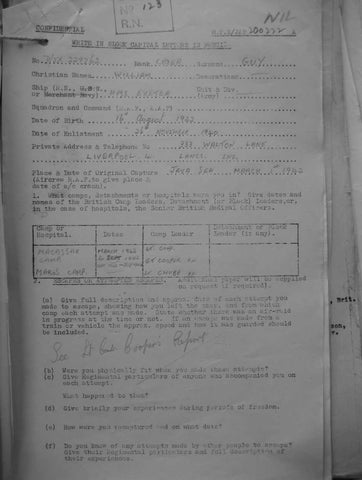 No 123
R.N.
NIL
CONFIDENTIAL
WRITE IN BLOCK CAPITAL LETTERS IN PENCIL
No. Rank Surname GUY
Christian Names WILLIAM Decorations
Ship (R.N., or Merchant Navy) HMS EXETER Unit & Div. (Army)
Squadron and Command (R.A.F.)
Date of Birth 16th August 1922
Date of Enlistment NOVEMBER 1940
Private Address & Telephone No. WALTON LANE
LIVERPOOL 4. LANCS. ENG.
Place & Date of Original Capture JAVA SEA MARCH 1st 1942
(Aircrew R.A.F. to give place &
date of a/c crash).
1. What camps, detachments or hospitals were you in? Give dates and
names of the British Camp Leaders, Detachment (or Block) Leaders, or,
in the case of hospitals, the Senior British Medical Officers.
Camp or Hospital. Dates Camp Leader Detachment or Block Leader (if any).
MACASSAR CAMP MARCH 1942
Lt COOPER RN
MAROS CAMP
2. ESCAPES OR ATTEMPTED ESCAPES. Additional paper will be supplied
on request if required).
(a) Give full description and approx. date of each attempt you
made to escape, showing how you left the camp, and from which
camp each attempt was made. State whether there was an air-raid
in progress at the time or not. If an escape was made from a
train or vehicle the approx. speed and how it was guarded should
be included.
See Lt Cooper's Report
(b) Were you physically fit when you made these attempts?
(c) Give Regimental particulars of anyone who accompanied you on
each attempt.
What happened to them?
(d) Give briefly your experiences during periods of freedom.
(e) How were you recaptured and on what date?
(f) Do you know of any attempts made by other people to escape?
Give their Regimental particulars and full description of
their experiences.